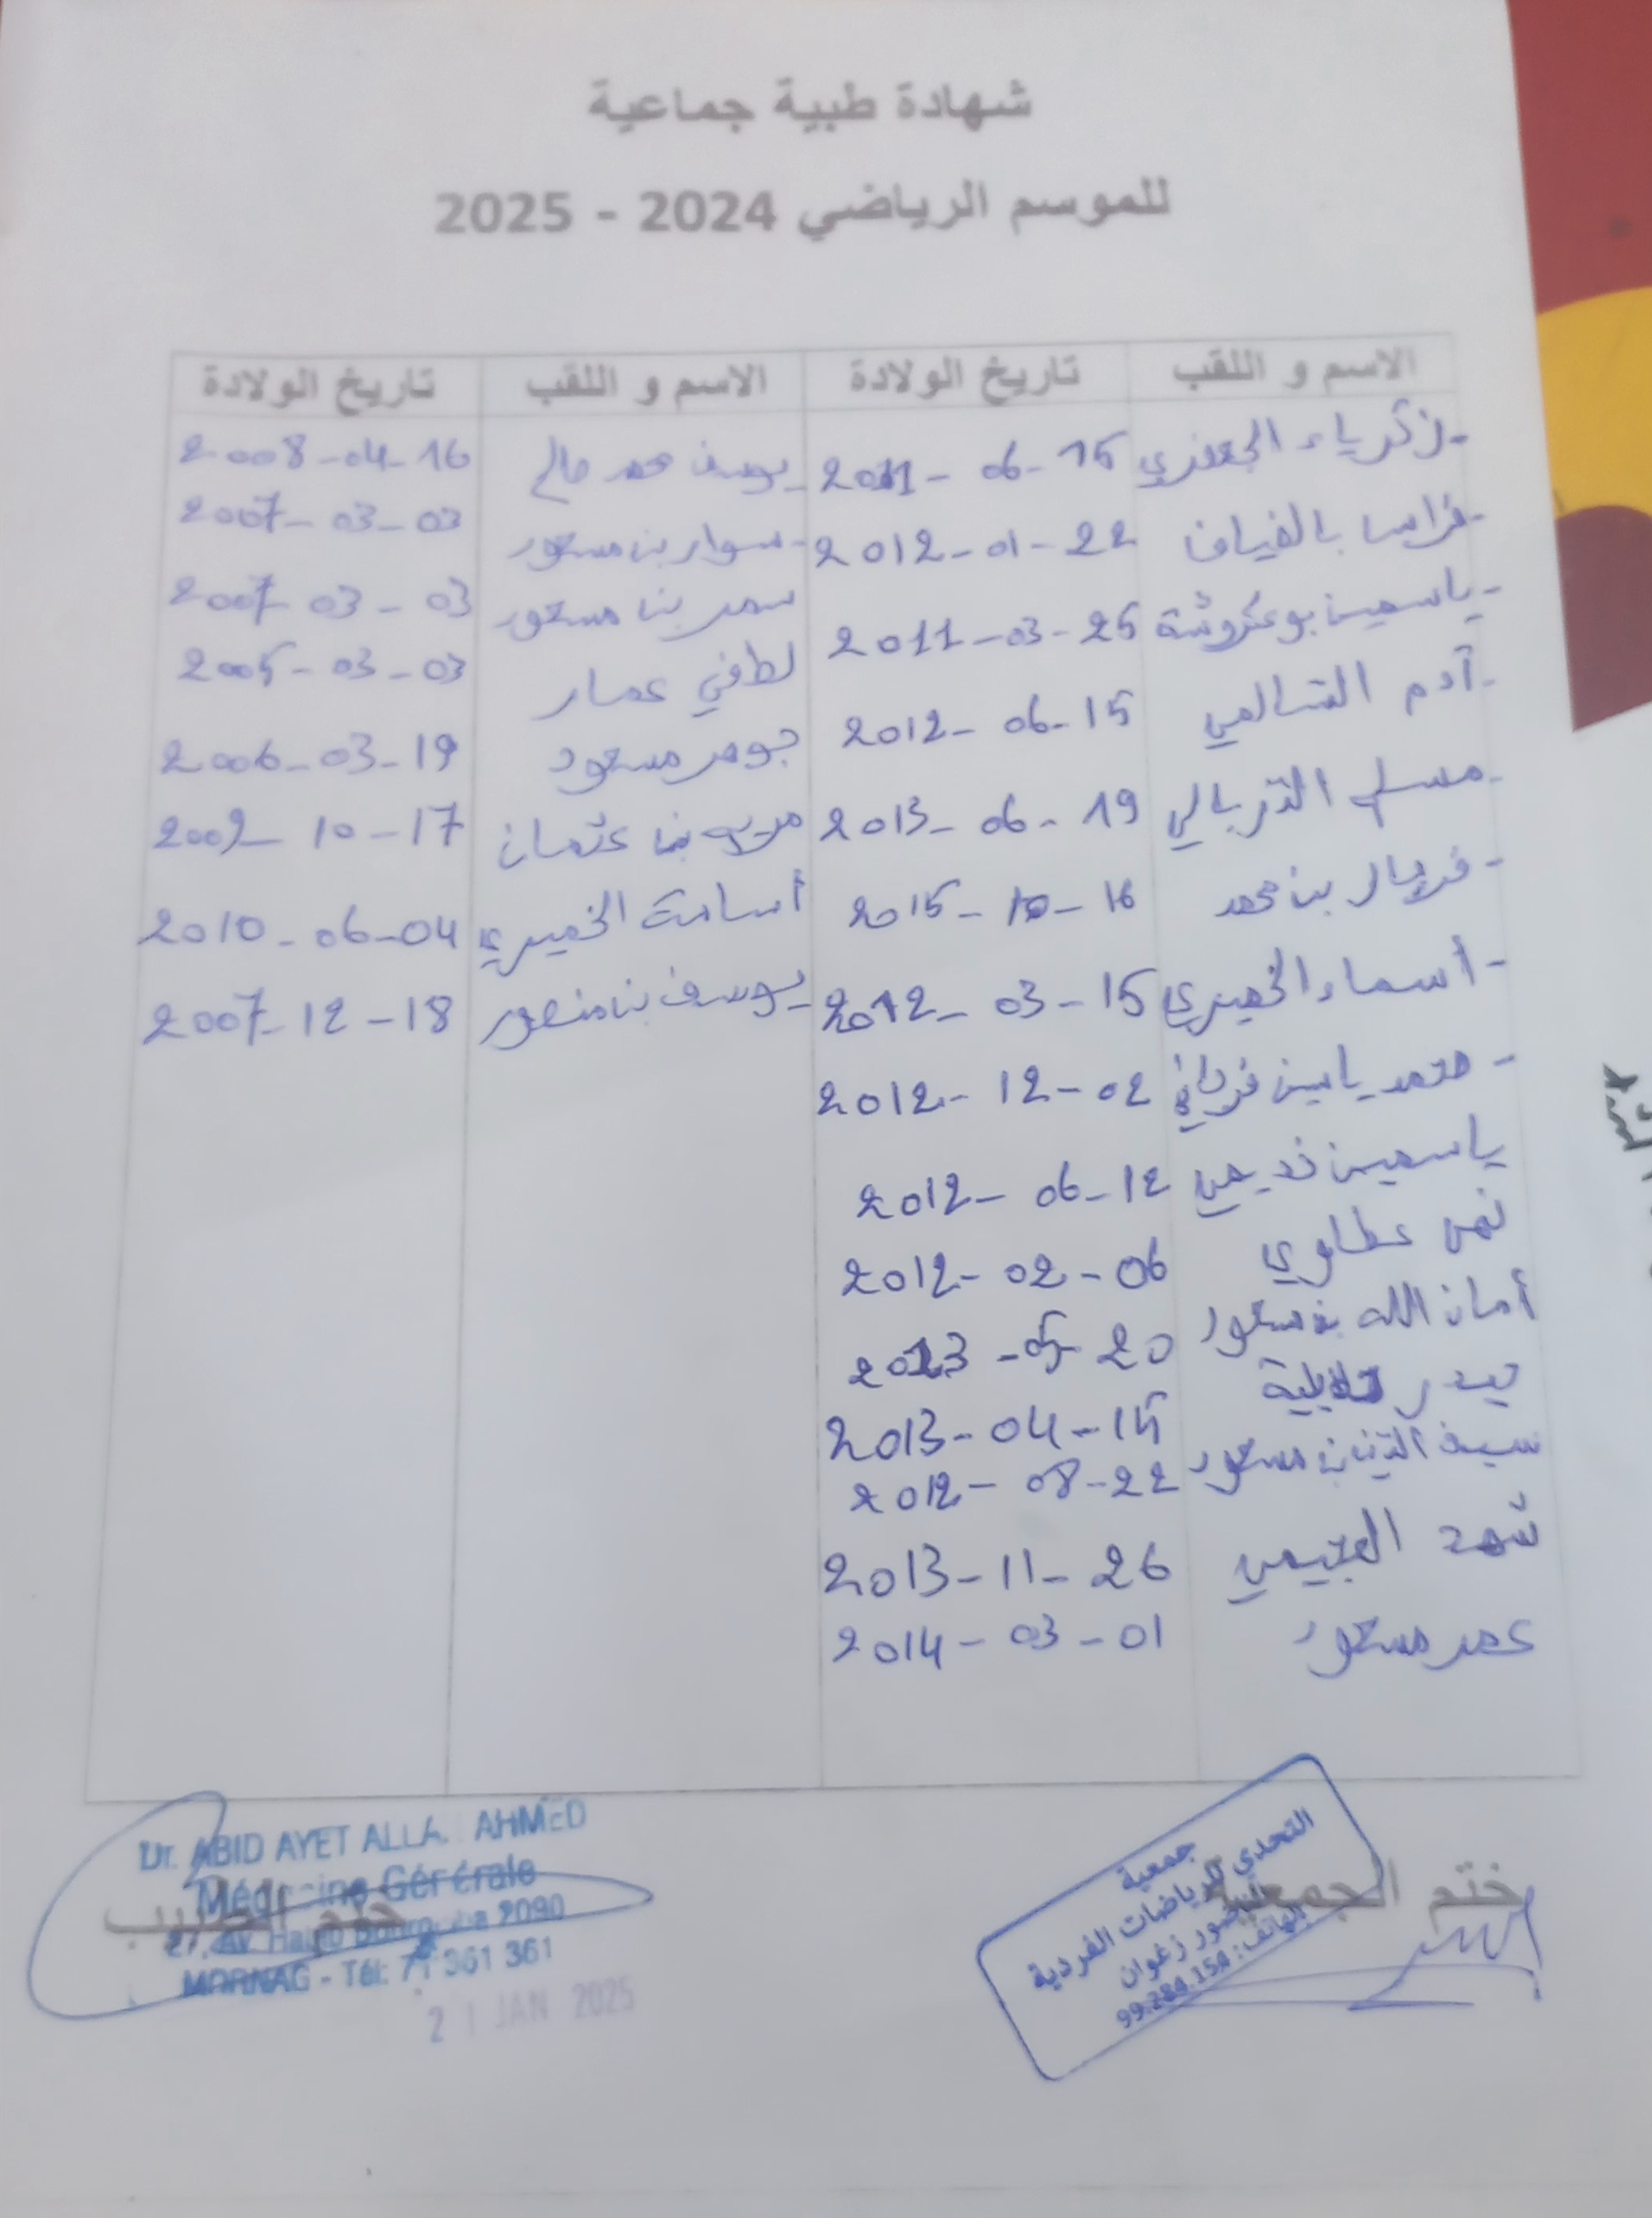 شهادة طبية جماعية
للموسم الرياضي 2024 - 2025
الاسم و اللقب تاريخ الولادة الاسم و اللقب تاريخ الولادة
- زكرياء الجعفري 2011-06-15 يوسف محمد صالح 2008-04-16
- فراس بالضياف 2012-01-22 - سوار بن مسعود 2007-03-03
- ياسمين بوعكروشة 2011-03-25 سمر بن مسعود 2007-03-03
- آدم السالمي 2012-06-15 لطفي عمار 2005-03-03
- مسلم التربالي 2013-06-19 جوهر مسعود 2006-03-19
- فريال بن محمد 2015-10-16 مريم بن عثمان 2009-10-17
- أسماء الخميري 2012-03-15 أسامة الخميري 2010-06-04
- محمد ياسين فرحاني 2012-12-02 يوسف بن منصور 2007-12-18
ياسمين 2012-06-12
عطاوي 2012-02-06
أمان الله بن مسعود 2013-05-20
حيدر 2013-04-15
سيف الدين بن مسعود 2012-08-22
شهد 2013-11-26
عمر مسعود 2014-03-01
ختم الجمعية ختم الطبيب
جمعية
التحدي للرياضات الفردية
بالناظور زغوان
الهاتف: 99.284.154
Dr. ABID AYET ALLA AHMED
Médecine Générale
27, Av. Habib Bourguiba 2090
MORNAG - Tél: 71 361 361
21 JAN 2025